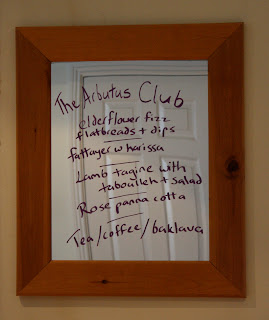 The Arbutus Club
elderflower fizz
flatbreads + dips
fattayer w harissa
Lamb tagine with
tabouleh + salad
Rose panna cotta
Tea/coffee/baklava